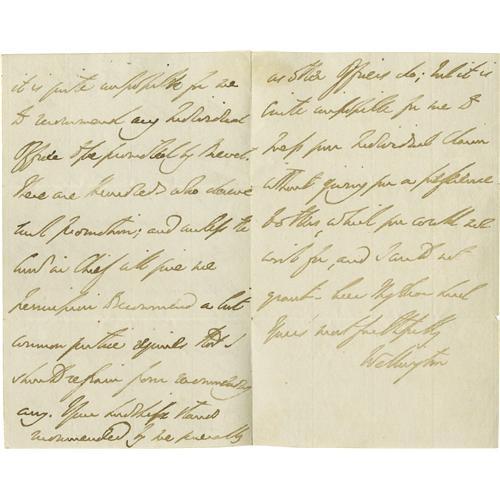 it is quite impossible for me
to recommend any Individual
Officer to be promoted by Brevet.
There are Hundreds who deserve
such promotion; and unless the
Comr in Chief will give me
Permission to recommend a list
common justice requires that I
should refrain from recommending
any. Your Lordship stands
recommended by me generally
as other Officers do; but it is
quite impossible for me to
press your Individual claim
without giving you a preference
to others which you could not
wish for, and I could not
grant. Believe me My dear Lord
Yours most faithfully
Wellington